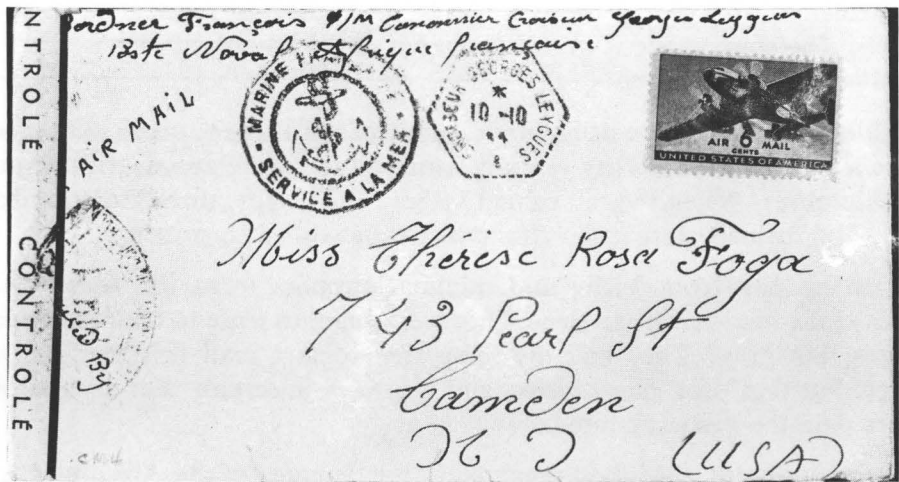 François Q/M Canonnier Croiseur Georges Leygues
Poste Navale Afrique française
AIR MAIL
MARINE FRANÇAISE
SERVICE A LA MER
CROISEUR GEORGES LEYGUES
*
10-10
AIR 6 MAIL
CENTS
UNITED STATES OF AMERICA
Miss Thérèse Rosa Foga
743 Pearl St
Camden
N J (USA)
By
NTROLÉ CONTROLÉ